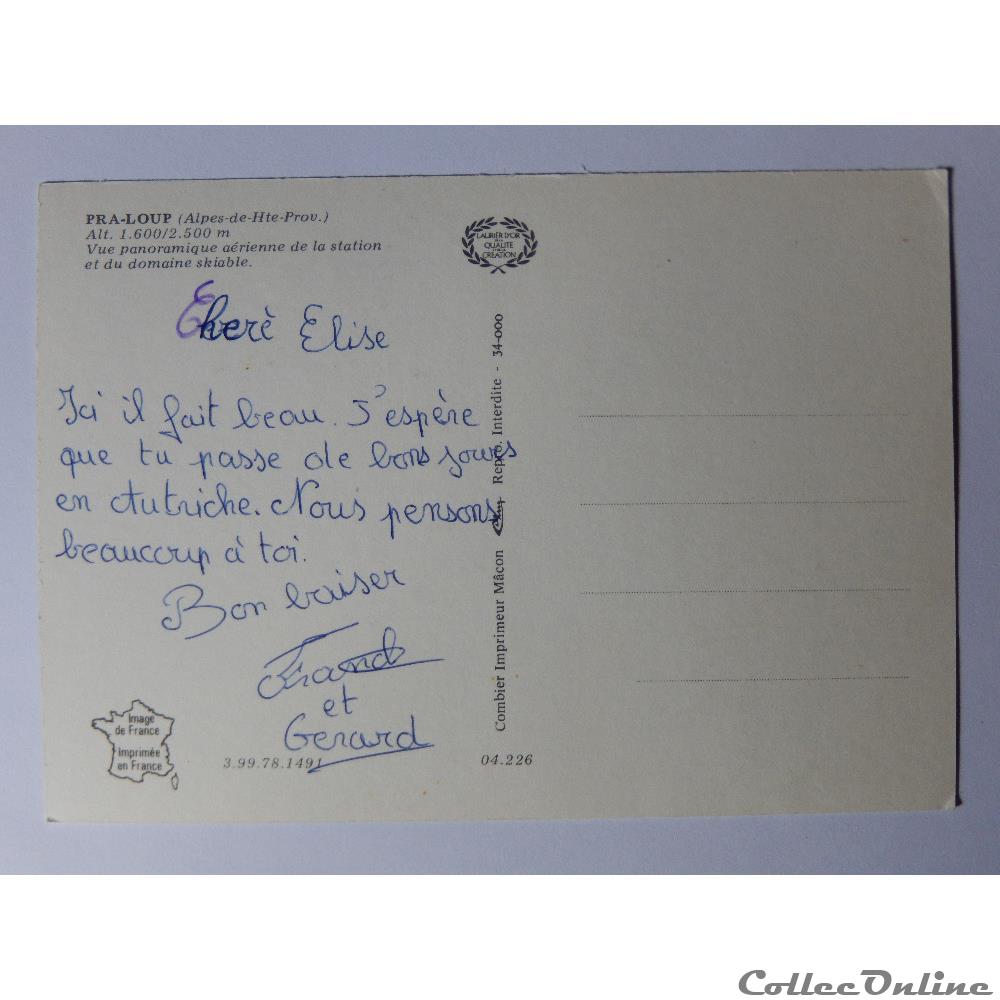 PRA-LOUP (Alpes-de-Hte-Prov.)
Alt. 1.600/2.500 m
Vue panoramique aérienne de la station
et du domaine skiable.
LAURIER D'OR
DE LA
QUALITÉ
ET DE LA
CRÉATION
Cherè Elise
Ici il fait beau. J'espère
que tu passe de bons jours
en Autriche. Nous pensons
beaucoup à toi.
Bon baiser
Franck
et
Gerard
Combier Imprimeur Mâcon - Repro. Interdite - 34-000
Image
de France
Imprimée
en France
3.99.78.1491
04.226
CollecOnline